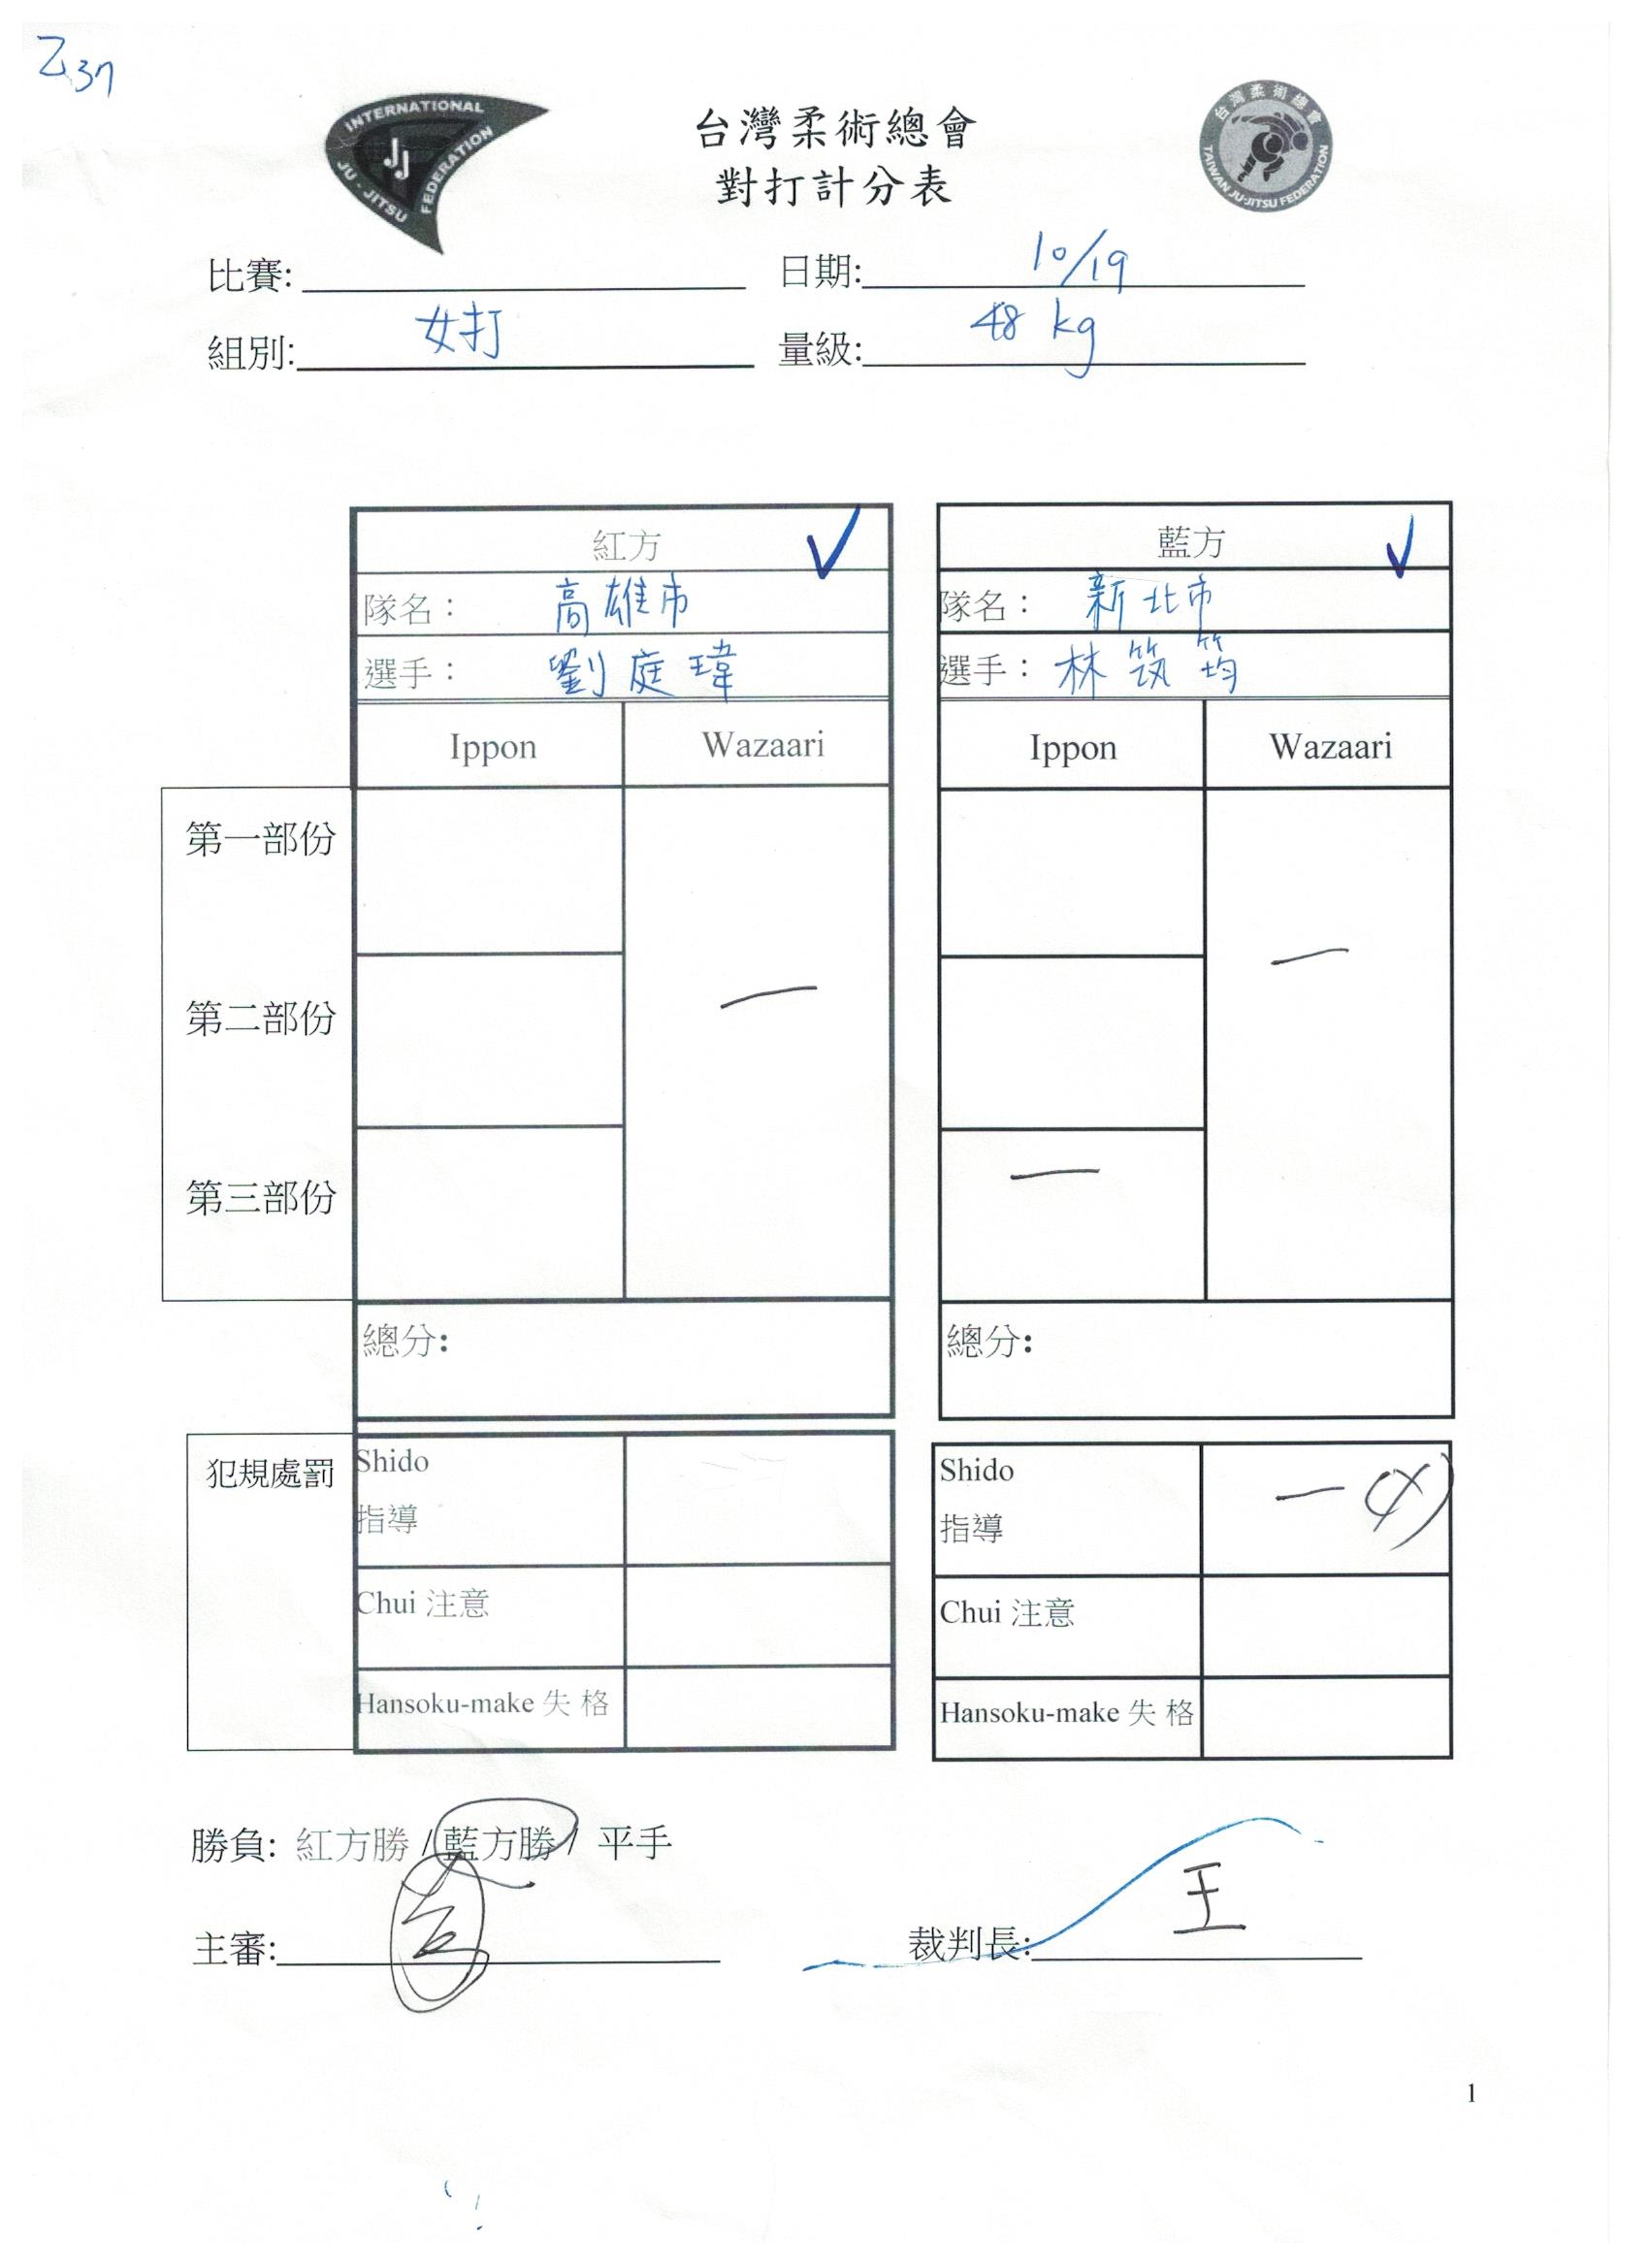 Z37
INTERNATIONAL
JJ
JU-JITSU FEDERATION
台灣柔術總會
對打計分表
台灣柔術總會
TAIWAN JU-JITSU FEDERATION
比賽: 日期: 10/19
組別: 女打 量級: 48 kg
紅方 ✓ 藍方 ✓
隊名： 高雄市 隊名： 新北市
選手： 劉庭瑋 選手： 林筑筠
Ippon Wazaari Ippon Wazaari
第一部份
一
第二部份 一
第三部份 一
總分: 總分:
犯規處罰 Shido Shido 一 (X)
指導 指導
Chui 注意 Chui 注意
Hansoku-make 失 格 Hansoku-make 失 格
勝負: 紅方勝 / 藍方勝 / 平手
主審: 裁判長: 王
1